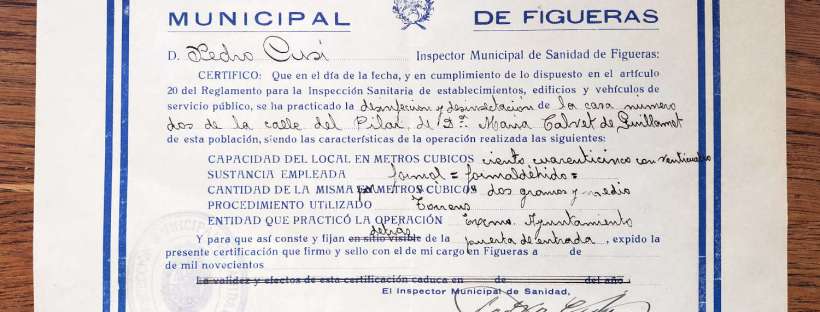 MUNICIPAL DE FIGUERAS
D. Pedro Cusí Inspector Municipal de Sanidad de Figueras:
CERTIFICO: Que en el día de la fecha, y en cumplimiento de lo dispuesto en el artículo
20 del Reglamento para la Inspección Sanitaria de establecimientos, edificios y vehículos de
servicio público, se ha practicado la desinfección y desinsectación de la casa numero
dos de la calle del Pilar, de Dª Maria Calvet de Guillamet
de esta población, siendo las características de la operación realizada las siguientes:
CAPACIDAD DEL LOCAL EN METROS CUBICOS ciento cuarenticinco con
SUSTANCIA EMPLEADA formol = formaldéhido =
CANTIDAD DE LA MISMA METROS CUBICOS dos gramos y medio
PROCEDIMIENTO UTILIZADO Torrens
ENTIDAD QUE PRACTICÓ LA OPERACIÓN Excmo. Ayuntamiento
detrás
Y para que así conste y fijan en sitio visible de la puerta de entrada, expido la
presente certificación que firmo y sello con el de mi cargo en Figueras a de
de mil novecientos
La validez y efectos de esta certificación caduca en de del año
El Inspector Municipal de Sanidad,